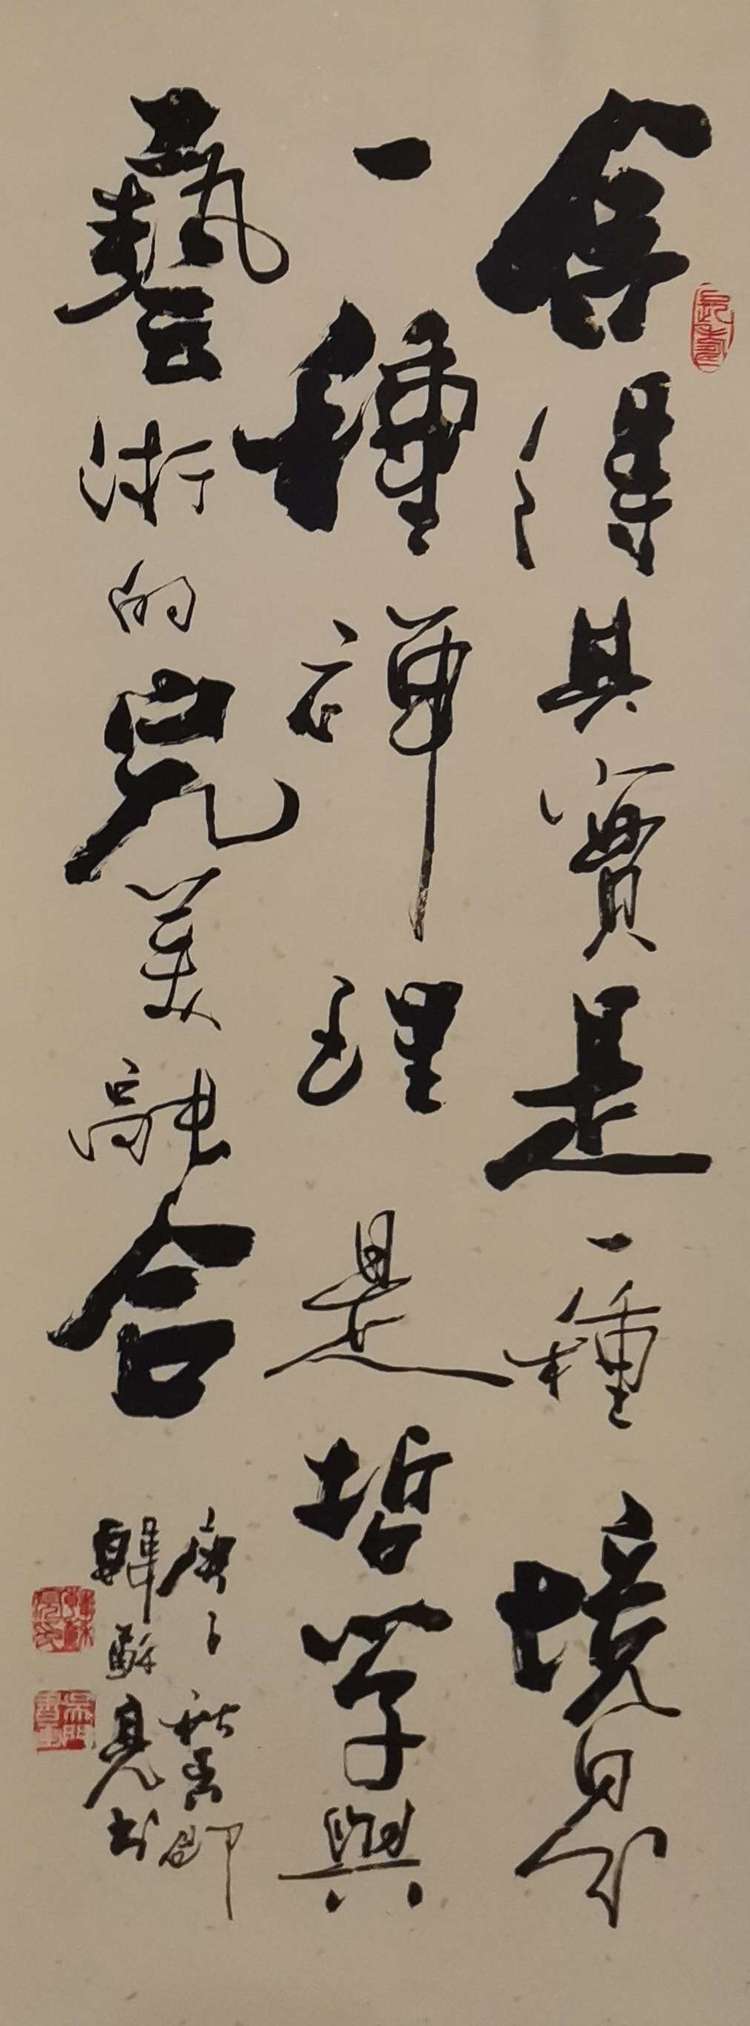 舍得其實是一種境界
一種禪理是哲學與
藝術的完美融合
庚子秋
韓酥亮书